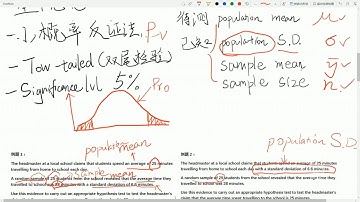 - 小概率反证法 Pv
- Tow-tailed (双尾检验)
- Significance lvl 5%
Pro
population mean
sample mean
待测 population mean μ
已知2 population S.D. σ
sample mean
sample size n
population S.D.
例题 1:
The headmaster at a local school claims that students spend an average of 25 minutes
travelling from home to school each day.
A random sample of 25 students from the school revealed that the average time they
travelled to school was minutes with a standard deviation of 6.8 minutes.
Use this evidence to carry out an appropriate hypothesis test to test the headmaster's
例题 2:
The headmaster at a local school claims that students spend an average of 25 minutes
travelling from home to school each day with a standard deviation of 6.8 minutes.
A random sample of students from the school revealed that the average time they
travelled to school was 28 minutes.
Use this evidence to carry out an appropriate hypothesis test to test the headmaster's